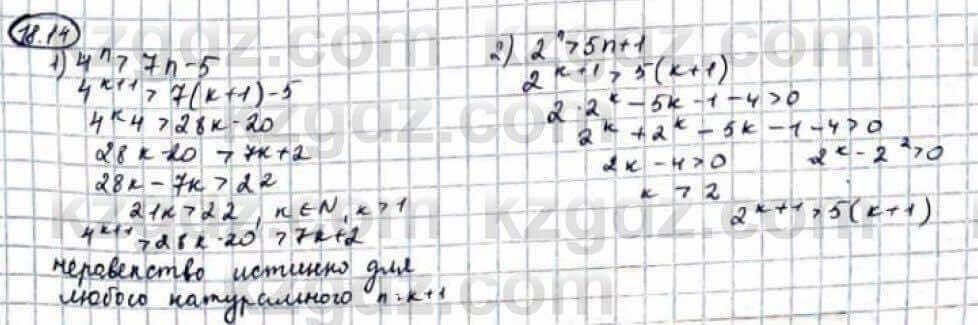 18.14
1) 4ⁿ > 7n - 5
4ᵏ⁺¹ > 7(k+1) - 5
4ᵏ4 > 28k - 20
28k - 20 > 7k + 2
28k - 7k > 22
21k > 22, k ∈ N, k > 1
4ᵏ⁺¹ > 28k - 20 > 7k + 2
неравенство истинно для
любого натурального n = k+1
2) 2ⁿ > 5n + 1
2ᵏ⁺¹ > 5(k+1)
2 · 2ᵏ - 5k - 1 - 4 > 0
2ᵏ + 2ᵏ - 5k - 1 - 4 > 0
2k - 4 > 0 2ᵏ - 2² > 0
k > 2
2ᵏ⁺¹ > 5(k+1)
kzgdz.com